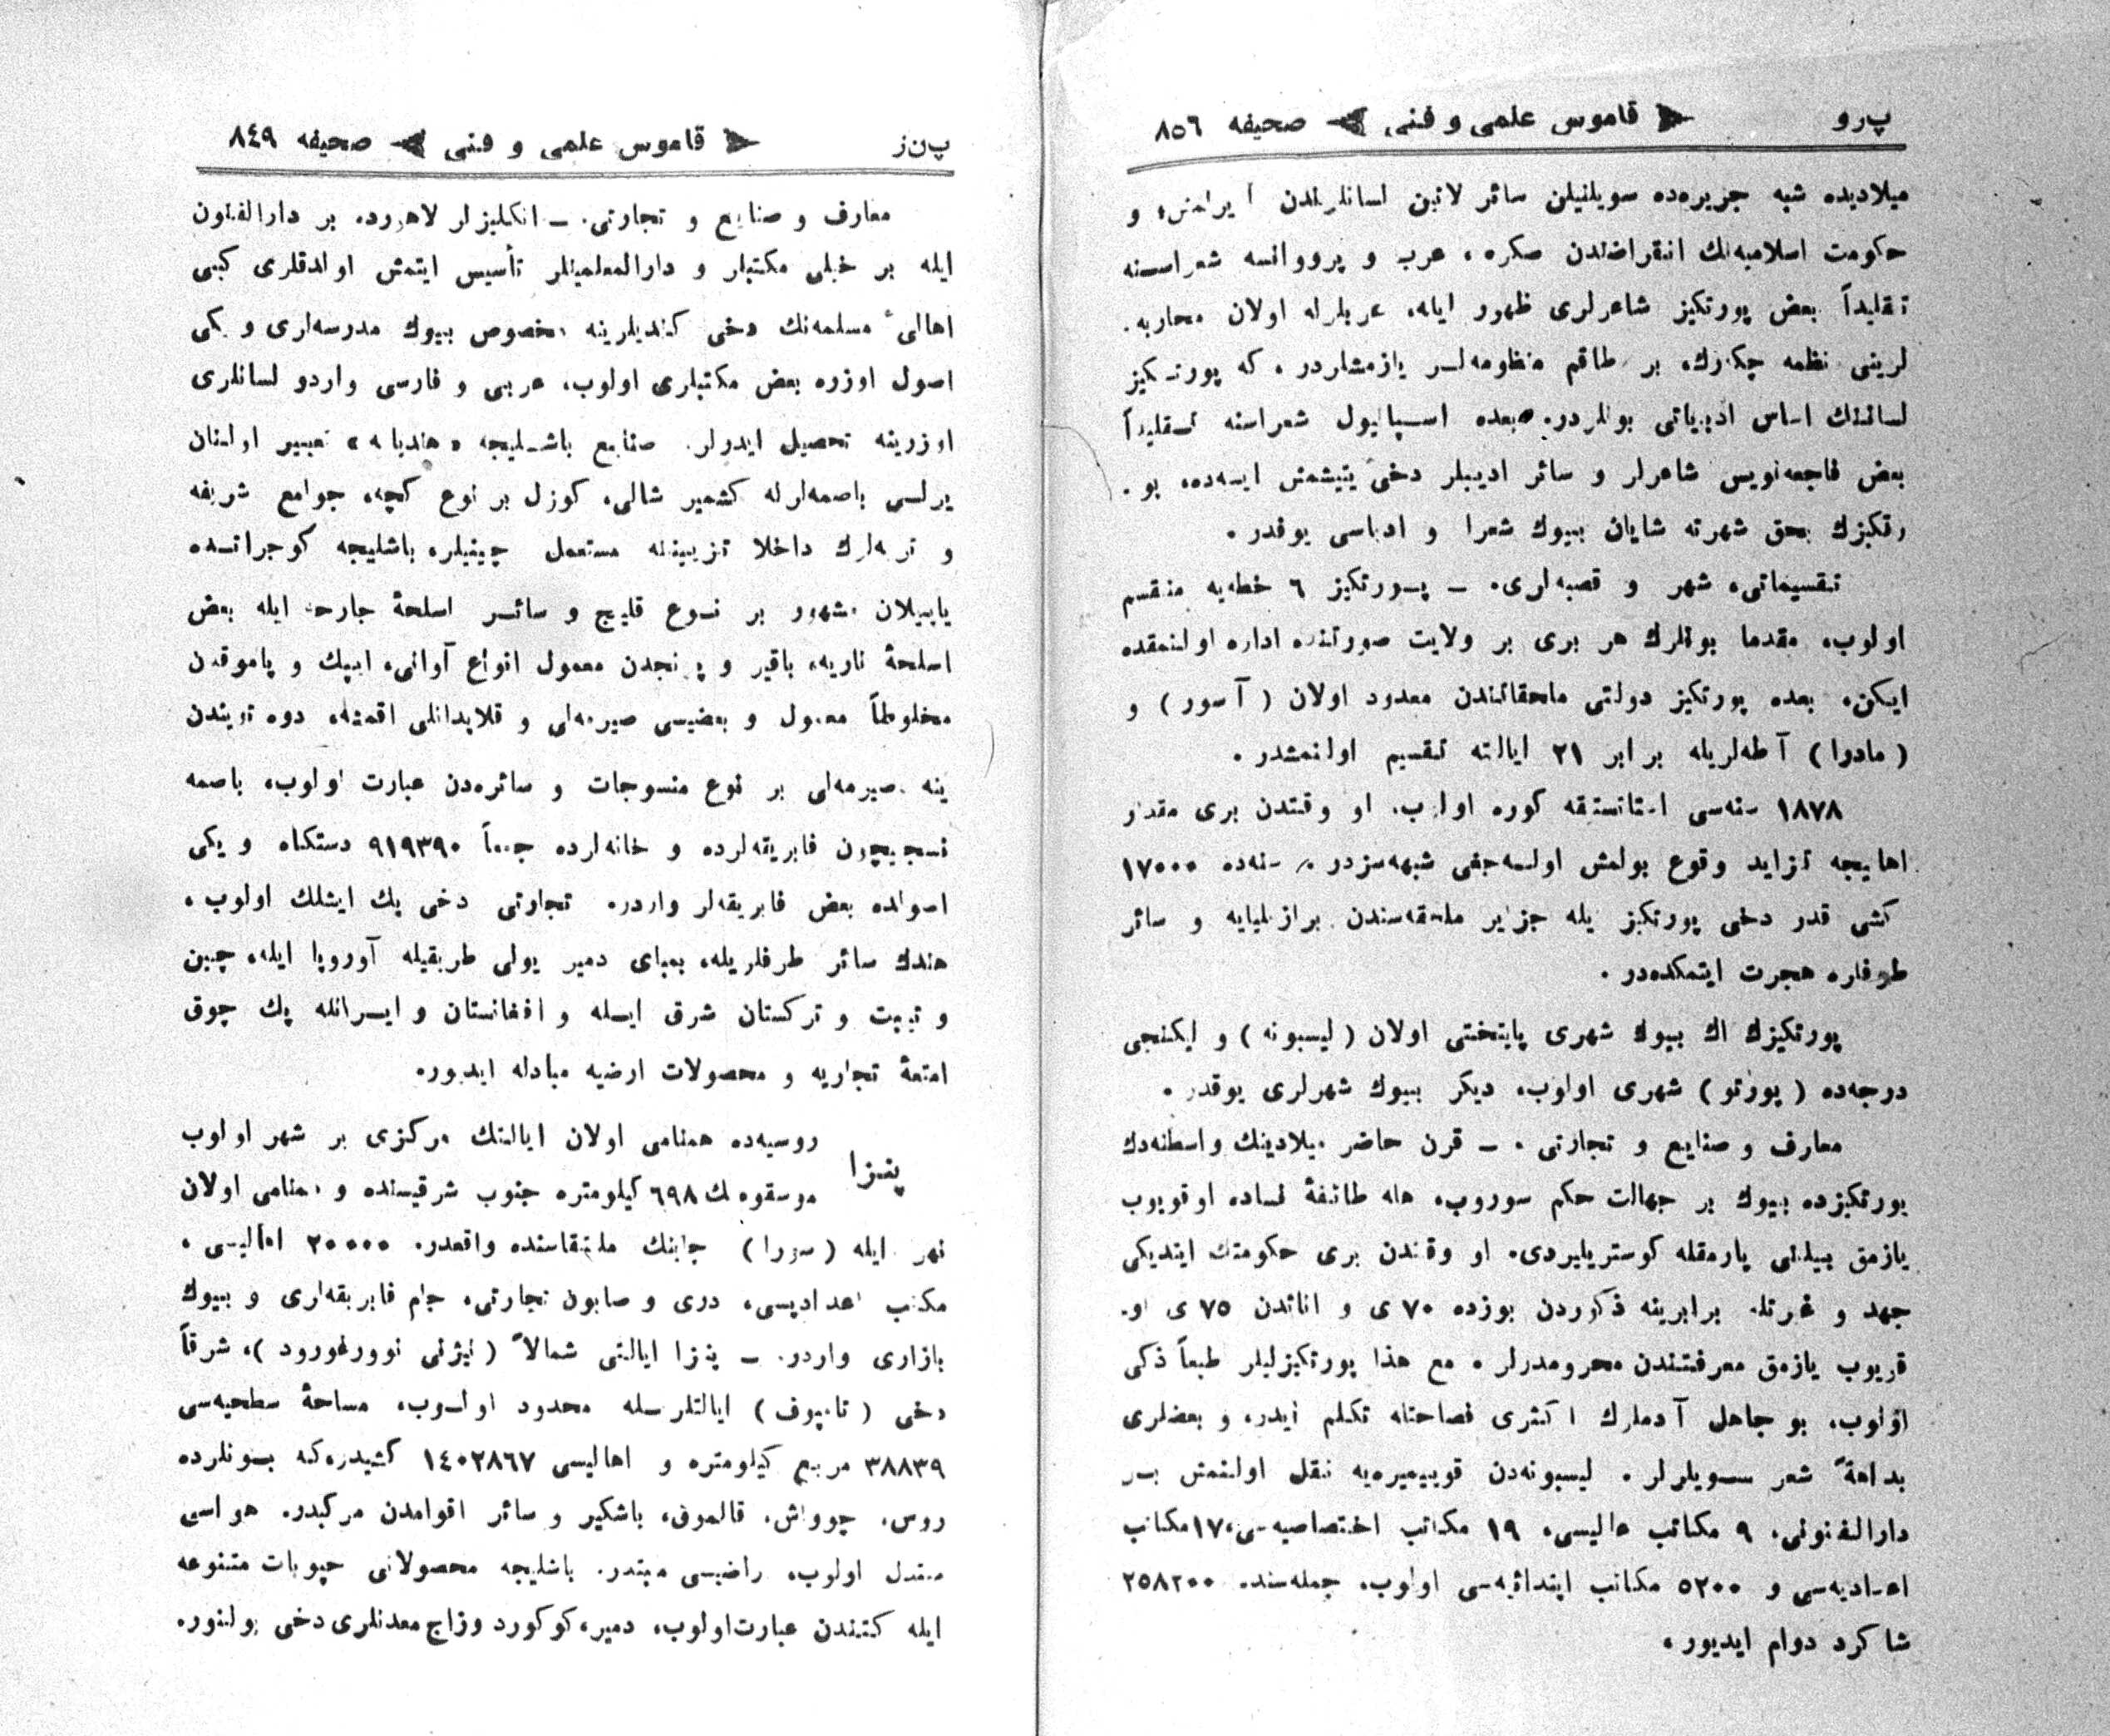 پ‌رو قاموس علمی و فنی صحیفه ٨٥٦
میلادیده شبه جزیره‌ده سویلنیلن سائر لاتین لسانلرندن آیرلمش، و
حکومت اسلامیه‌نك انقراضندن صکره، عرب و پرووانسه شعراسنه
تقلیداً بعض پورتکیز شاعرلری ظهور ایله، عربلرله اولان محاربه‌
لرینی نظمه چکرك، بر طاقم منظومه‌لر یازمشلردر، که پورتکیز
لساننك اساس ادبیاتی بونلردر. بعده اسپانیول شعراسنه تقلیداً
بعض فاجعه‌نویس شاعرلر و سائر ادیبلر دخی یتیشمش ایسه‌ده، پو
رتکیزك بحق شهرته شایان بیوك شعرا و ادباسی یوقدر.
تقسیماتی، شهر و قصبه‌لری. ــ پورتکیز ٦ خطه‌یه منقسم
اولوب، مقدما بونلرك هر بری بر ولایت صورتنده اداره اولنمقده
ایکن، بعده پورتکیز دولتی ملحقاتندن معدود اولان (آسور) و
(مادرا) آطه‌لریله برابر ٢١ ایالته تقسیم اولنمشدر.
١٨٧٨ سنه‌سی استاتستیقه کوره اولوب، او وقتدن بری مقدار
اهالیجه تزاید وقوع بولمش اوله‌جغی شبهه‌سزدر. سنه‌ده ١٧٠٠٠
کشی قدر دخی پورتکیز یله جزایر ملحقه‌سندن برازیلیایه و سائر
طرفلره هجرت ایتمکده‌در.
پورتکیزك اك بیوك شهری پایتختی اولان (لیسبونه) و ایکنجی
درجه‌ده (پورتو) شهری اولوب، دیکر بیوك شهرلری یوقدر.
معارف و صنایع و تجارتی. ــ قرن حاضر میلادینك واسطنه‌دك
پورتکیزده بیوك بر جهالت حکم سوروب، هله طائفهٔ نساده اوقویوب
یازمق بیلنی پارمقله کوستریلیردی. او وقتدن بری حکومتك ایتدیکی
جهد و غیرتله برابرینه ذکوردن یوزده ٧٠ی و اناثدن ٧٥ی او
قویوب یازمق معرفتندن محرومدرلر. مع هذا پورتکیزلیلر طبعاً ذکی
اولوب، بو جاهل آدملرك اکثری فصاحتله تکلم ایدر، و بعضلری
بداهةً شعر سویلرلر. لیسبونه‌دن قوییمبره‌یه نقل اولنمش بر
دارالفنونی، ٩ مکاتب عالیسی، ١٩ مکاتب اختصاصیه‌سی، ١٧ مکاتب
اعدادیه‌سی و ٥٢٠٠ مکاتب ابتدائیه‌سی اولوب، جمله‌سنده ٢٥٨٢٠٠
شاکرد دوام ایدیور.
پ‌ن‌ز قاموس علمی و فنی صحیفه ٨٤٩
معارف و صنایع و تجارتی. ــ انکلیزلر لاهورده بر دارالفنون
ایله بر خیلی مکتبلر و دارالمعلمینلر تأسیس ایتمش اولدقلری کبی
اهالیٔ مسلمه‌نك دخی کندیلرینه مخصوص بیوك مدرسه‌لری و یکی
اصول اوزره بعض مکتبلری اولوب، عربی و فارسی و اردو لسانلری
اوزرینه تحصیل ایدرلر. صنایع باشلیجه تعبیر اولنان
یرلی باصمه‌لرله کشمیر شالی، کوزل بر نوع کچه، جوامع شریفه
و تربه‌لرك داخلا تزییننه مستعمل چینیلر، باشلیجه کوجراتده
یاپیلان مشهور بر نوع قلیج و سائر اسلحهٔ جارحه ایله بعض
اسلحهٔ ناریه، باقیر و پرنجدن معمول انواع آوانی، ایپك و پاموقدن
مخلوطاً معمول و بعضیسی صیرمه‌لی و قلابدانلی اقمشه، دوه تویندن
ینه صیرمه‌لی بر نوع منسوجات و سائره‌دن عبارت اولوب، باصمه
نسجیچون فابریقه‌لرده و خانه‌لرده جمعاً ٩١٩٣٩٠ دستکاه و یکی
اصولده بعض فابریقه‌لر واردر. تجارتی دخی پك ایشلك اولوب،
هندك سائر طرفلریله، بمبای دمیر یولی طریقیله آوروپا ایله، چین
و تیبت و ترکستان شرقی ایله و افغانستان و ایرانله پك چوق
امتعهٔ تجاریه و محصولات ارضیه مبادله ایدیور.
پنزا روسیه‌ده همنامی اولان ایالتك مرکزی بر شهر اولوب
موسقوه‌نك ٦٩٨ کیلومتره جنوب شرقیسنده و همنامی اولان
نهر ایله (سورا) چاینك ملتقاسنده واقعدر. ٢٠٠٠٠ اهالیسی،
مکتب اعدادیسی، دری و صابون تجارتی، جام فابریقه‌لری و بیوك
بازاری واردر. ــ پنزا ایالتی شمالاً (نیژنی نووغورود)، شرقاً
دخی (تامبوف) ایالتلریله محدود اولوب، مساحهٔ سطحیه‌سی
٣٨٨٣٩ مربع کیلومتره و اهالیسی ١٤٠٢٨٦٧ کشیدر، که بونلرده
روس، چوواش، قالموق، باشکیر و سائر اقوامدن مرکبدر. هواسی
معتدل اولوب، اراضیسی منبتدر. باشلیجه محصولاتی حبوبات متنوعه
ایله کتندن عبارت اولوب، دمیر، کوکورد و زاج معدنلری دخی بولنور.